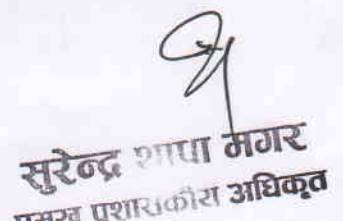 सुरेन्द्र थापा मगर
प्रमुख प्रशासकीय अधिकृत